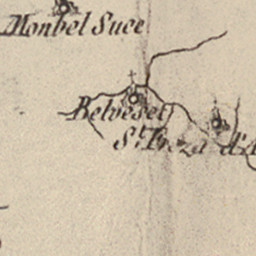 Monbel Suce
Belveset
St. Treza d'A